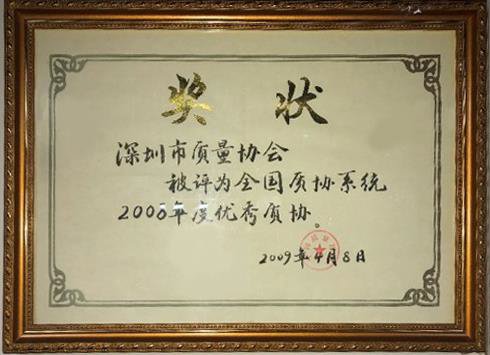 奖状
深圳市质量协会
被评为全国质协系统
2008年度优秀质协。
2009年4月8日